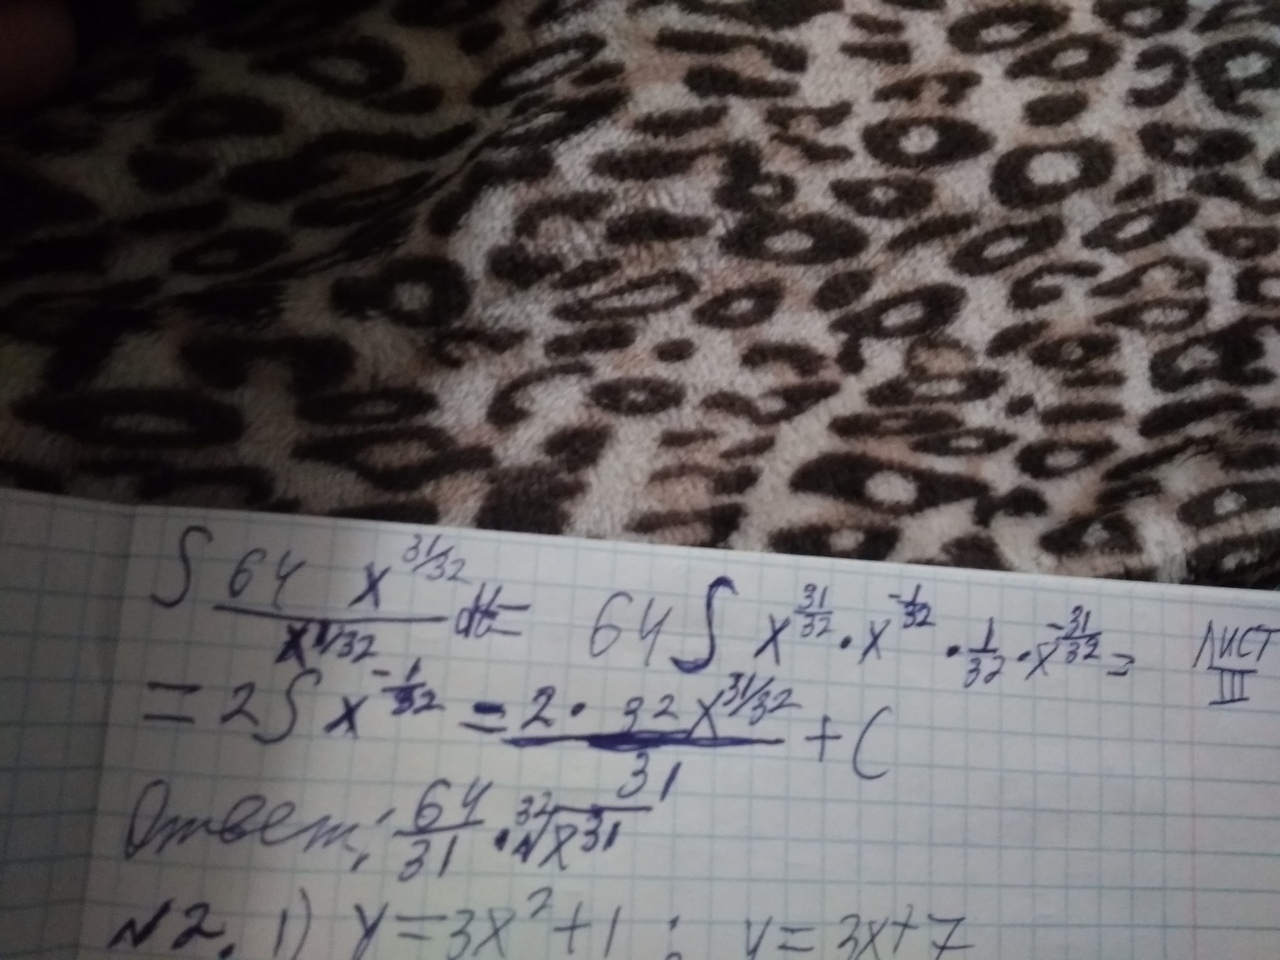 ∫ 64 x^31/32 / x^1/32 dt = 64 ∫ x^31/32 · x^-1/32 · 1/32 · x^-31/32 =
ЛИСТ III
= 2 ∫ x^-1/32 = 2 · 32 x^31/32 / 31 + C
Ответ: 64/31 · ³²√x³¹
№2. 1) y = 3x² + 1 ; y = 3x + 7